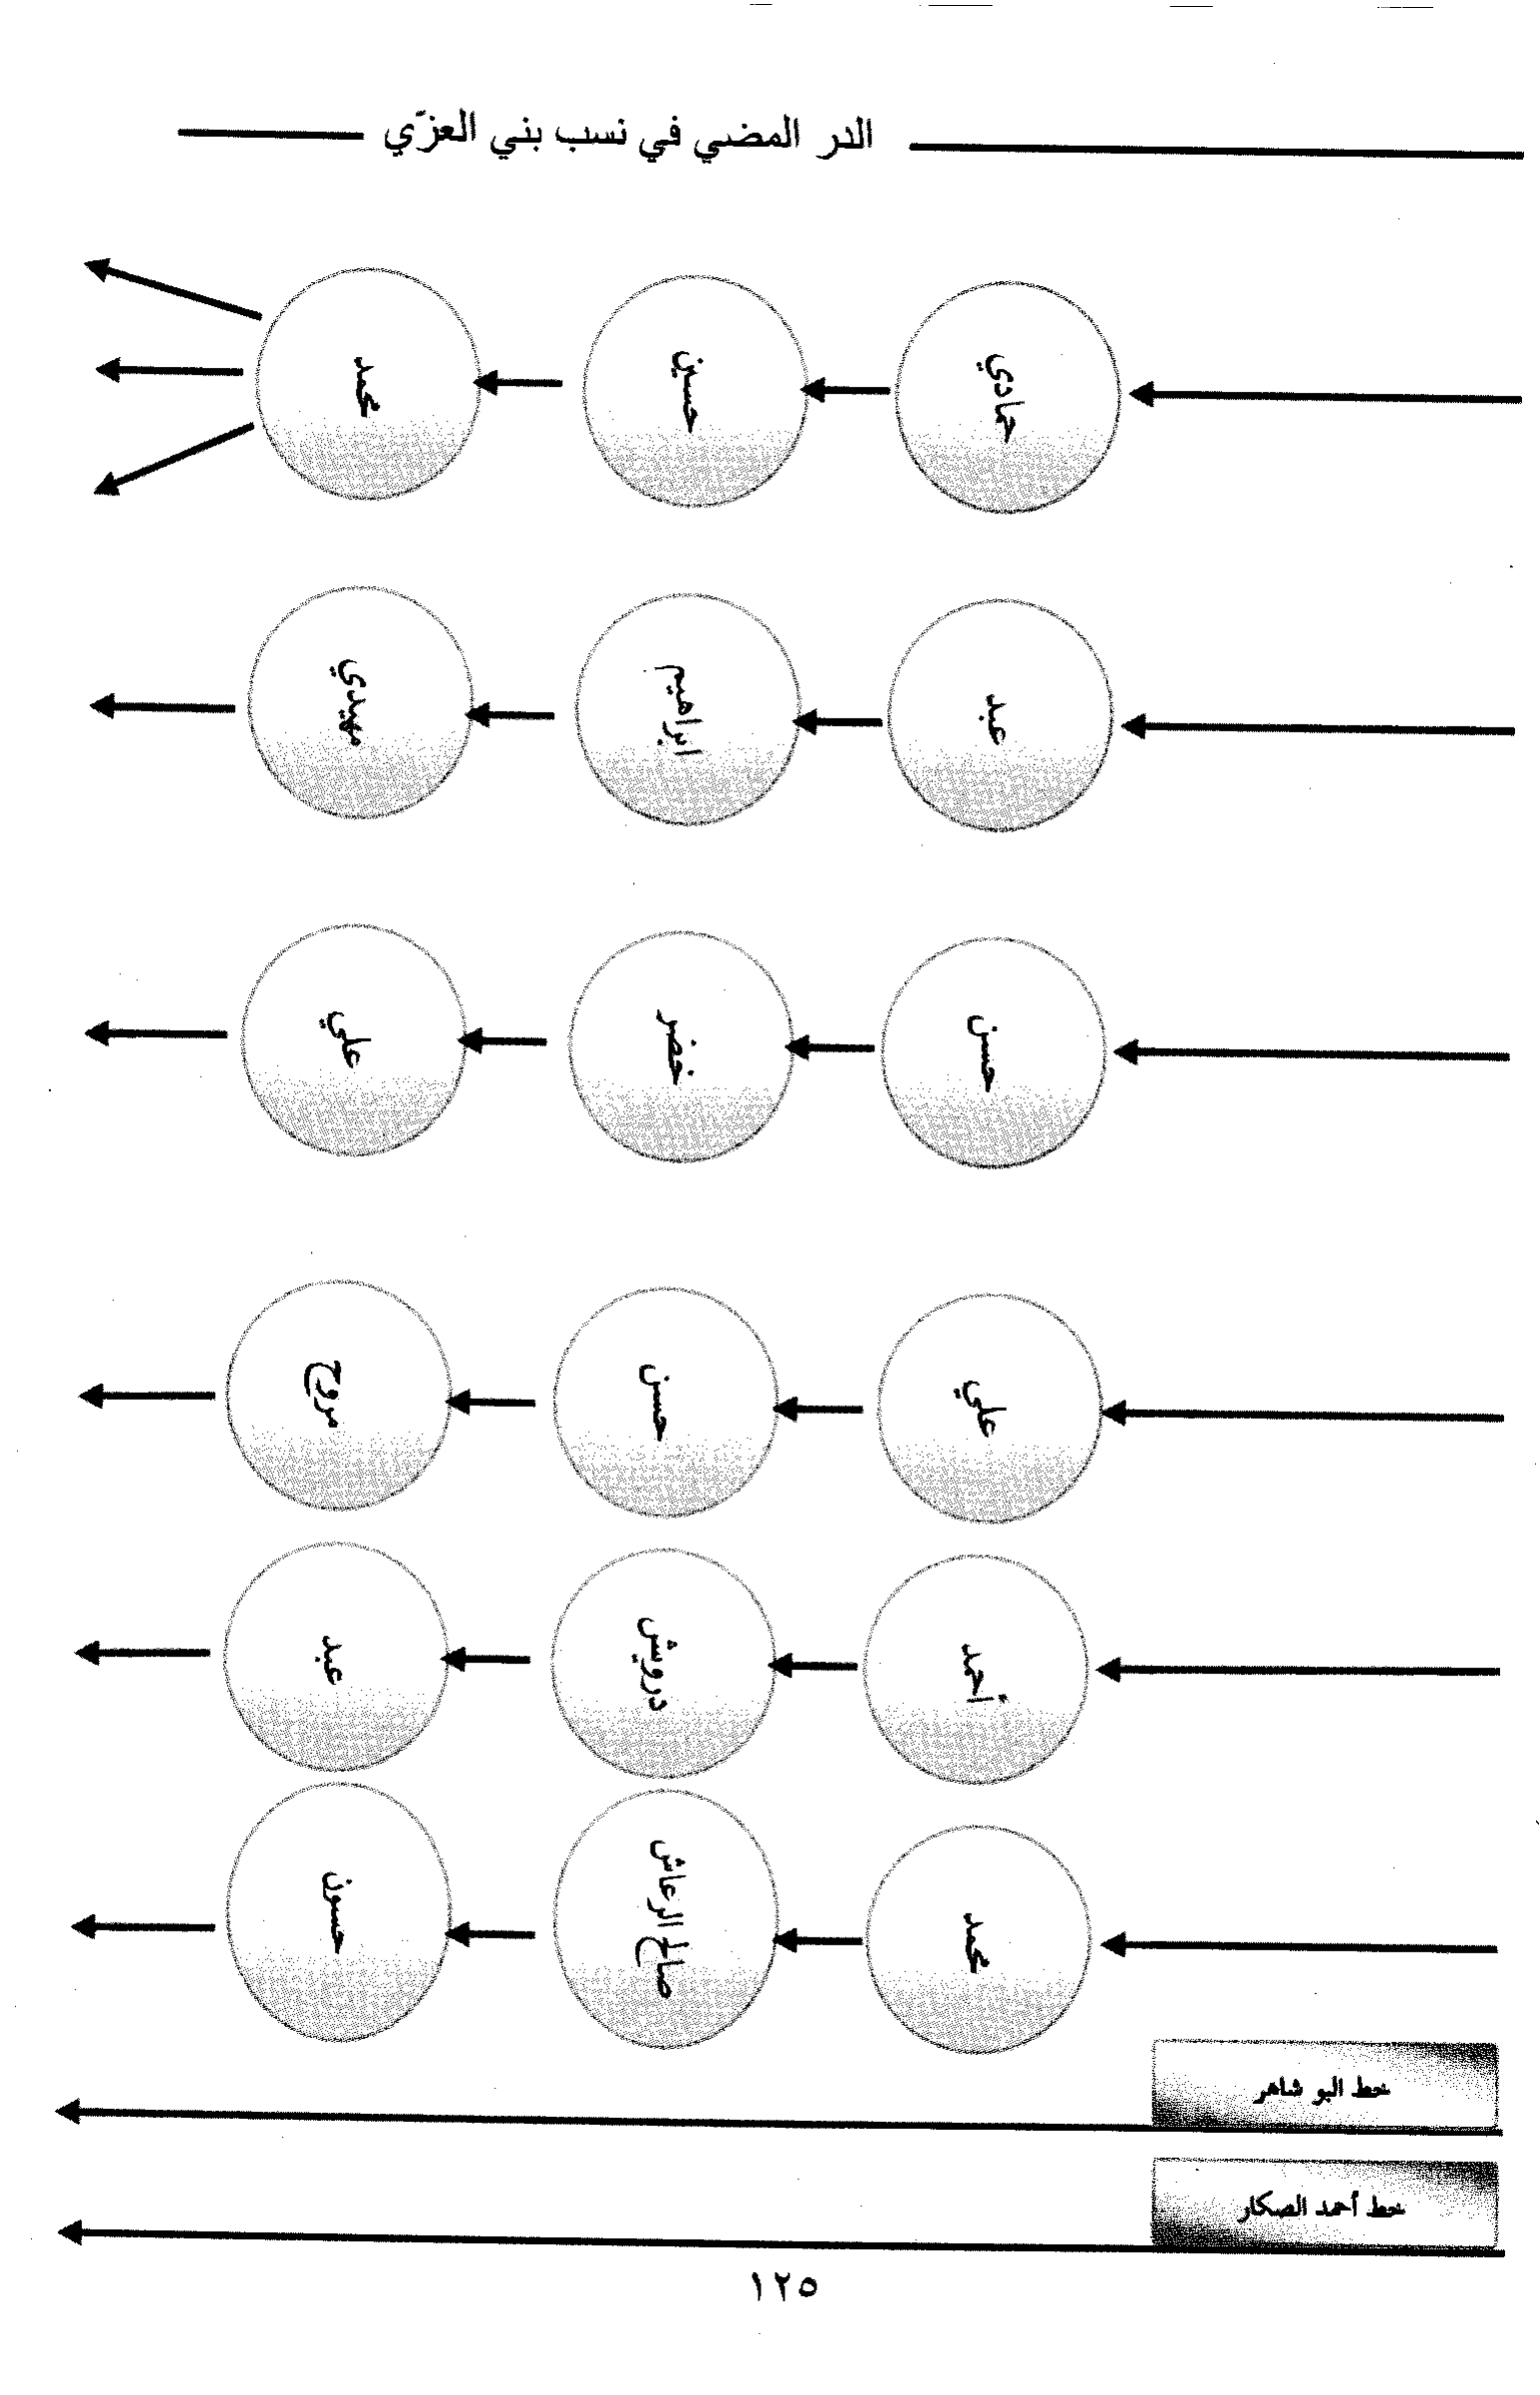 الدر المضي في نسب بني العزّي
حمادي
حسين
محمد
عبد
ابراهيم
مهيدي
حسن
خضر
علي
علي
حسن
مروح
أحمد
درويش
عبد
محمد
صالح الرعاش
حسون
خط البو شاهر
خط أحمد الصكار
١٢٥